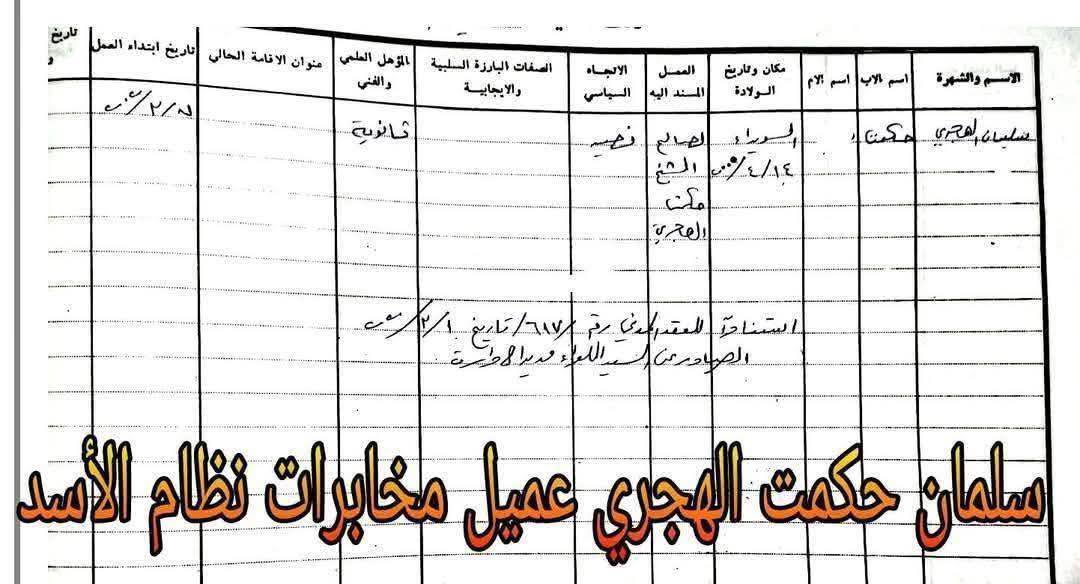 الاسم والشهرة اسم الاب اسم الام مكان وتاريخ العمل الاتجاه الصفات البارزة السلبية المؤهل العلمي عنوان الاقامة الحالي تاريخ ابتداء العمل تاريخ
الولادة المسند اليه السياسي والايجابية والفني
الهجري حكمت السويداء لصالح ثانوية
١٤/٤/ الشيخ
حكمت
الهجري
استنادآ للعقد رقم /٦١٧/ تاريخ
الصادر عن السيد اللواء مدير الادارة
سلمان حكمت الهجري عميل مخابرات نظام الأسد